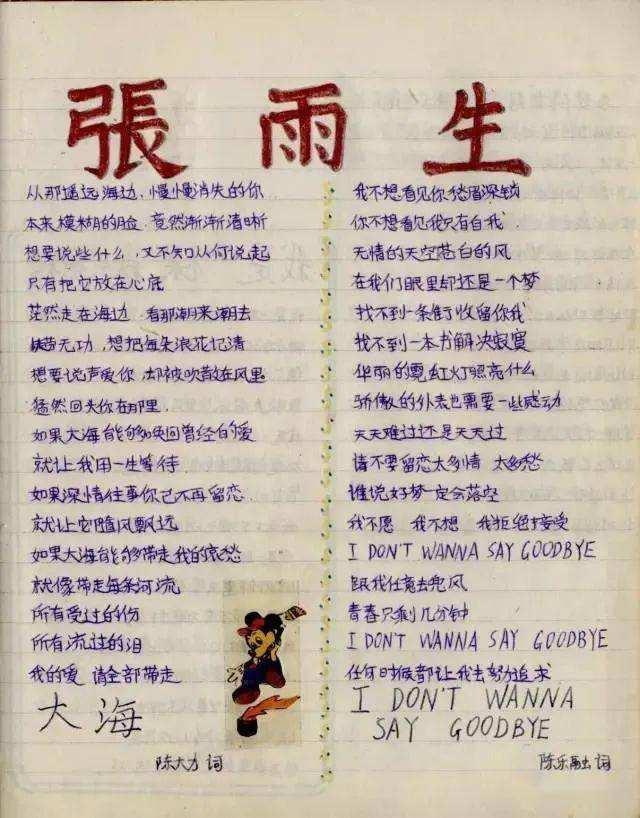 張雨生
从那遥远海边,慢慢消失的你
本来模糊的脸 竟然渐渐清晰
想要说些什么,又不知从何说起
只有把它放在心底
茫然走在海边 看那潮来潮去
徒劳无功,想把每朵浪花记清
想要说声爱你 却被吹散在风里
猛然回头你在那里
如果大海能够唤回曾经的爱
就让我用一生等待
如果深情往事你已不再留恋
就让它随风飘远
如果大海能够带走我的哀愁
就像带走每条河流
所有受过的伤
所有流过的泪
我的爱 请全部带走
大海
陈大力 词
我不想看见你愁眉深锁
你不想看见我只有自我
无情的天空苍白的风
在我们眼里却还是一个梦
找不到一条街收留你我
找不到一本书解决寂寞
华丽的霓虹灯照亮什么
骄傲的外表也需要一些感动
天天难过还是天天过
请不要留恋太多情 太多愁
谁说好梦一定会落空
我不愿 我不想 我拒绝接受
I DON'T WANNA SAY GOODBYE
跟我任意去兜风
青春只剩几分钟
I DON'T WANNA SAY GOODBYE
任何时候都让我去努力追求
I DON'T WANNA
SAY GOODBYE
陈乐融 词